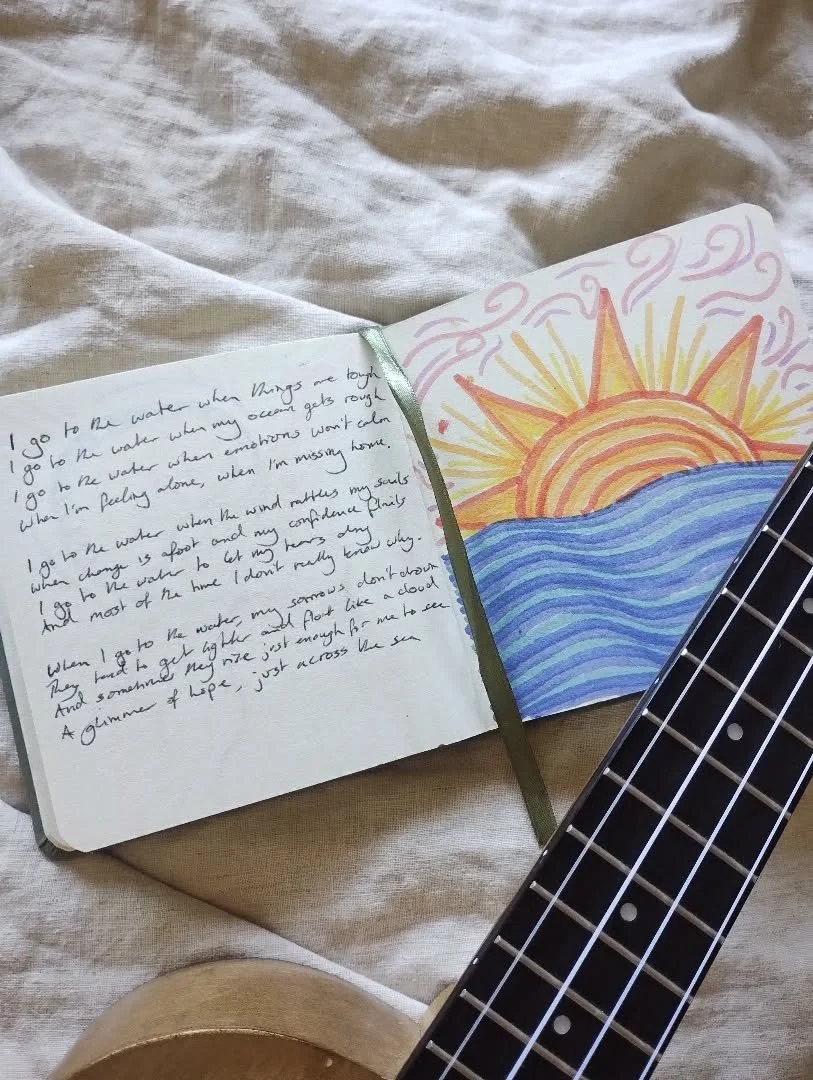 I go to the water when things are tough
I go to the water when my ocean gets rough
I go to the water when emotions won't calm
When I'm feeling alone, when I'm missing home.
I go to the water when the wind rattles my sails
When change is afoot and my confidence fails
I go to the water to let my tears dry
And most of the time I don't really know why.
When I go to the water, my sorrows don't drown
They tend to get lighter and float like a cloud
And sometimes they rise just enough for me to see
A glimmer of hope, just across the sea